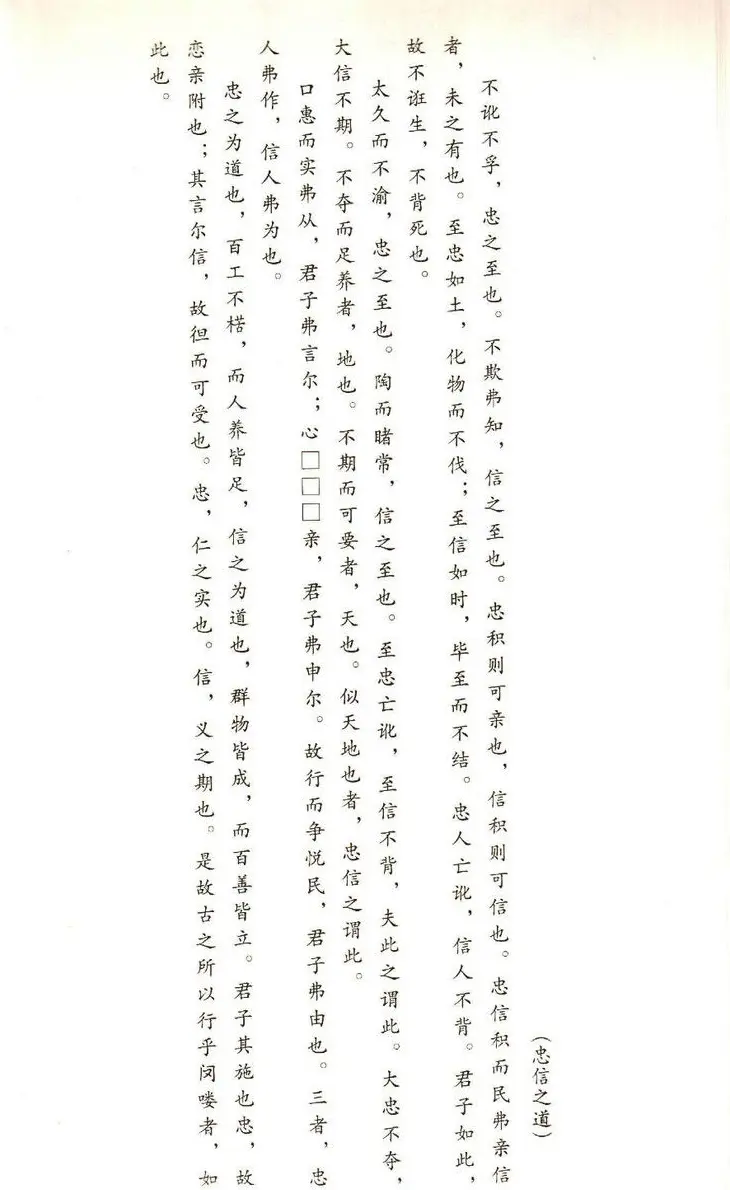 （忠信之道）
不讹不孚，忠之至也。不欺弗知，信之至也。忠积则可亲也，信积则可信也。忠信积而民弗亲信
者，未之有也。至忠如土，化物而不伐；至信如时，毕至而不结。忠人亡讹，信人不背。君子如此，
故不诳生，不背死也。
太久而不渝，忠之至也。陶而睹常，信之至也。至忠亡讹，至信不背，夫此之谓此。大忠不夺，
大信不期。不夺而足养者，地也。不期而可要者，天也。似天地也者，忠信之谓此。
口惠而实弗从，君子弗言尔；心□□□亲，君子弗申尔。故行而争悦民，君子弗由也。三者，忠
人弗作，信人弗为也。
忠之为道也，百工不楛，而人养皆足，信之为道也，群物皆成，而百善皆立。君子其施也忠，故
恋亲附也；其言尔信，故徂而可受也。忠，仁之实也。信，义之期也。是故古之所以行乎闵喽者，如
此也。